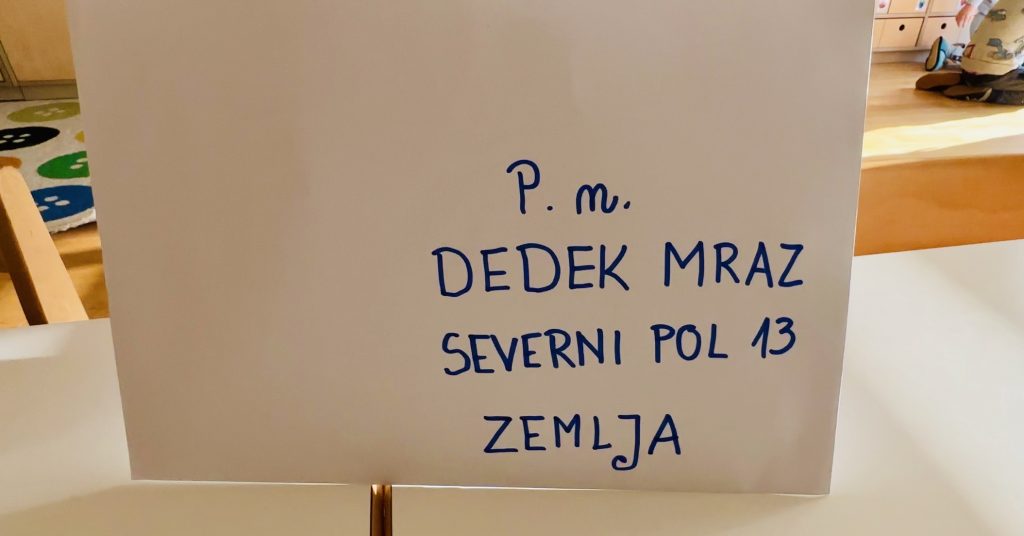 P. n.
DEDEK MRAZ
SEVERNI POL 13
ZEMLJA